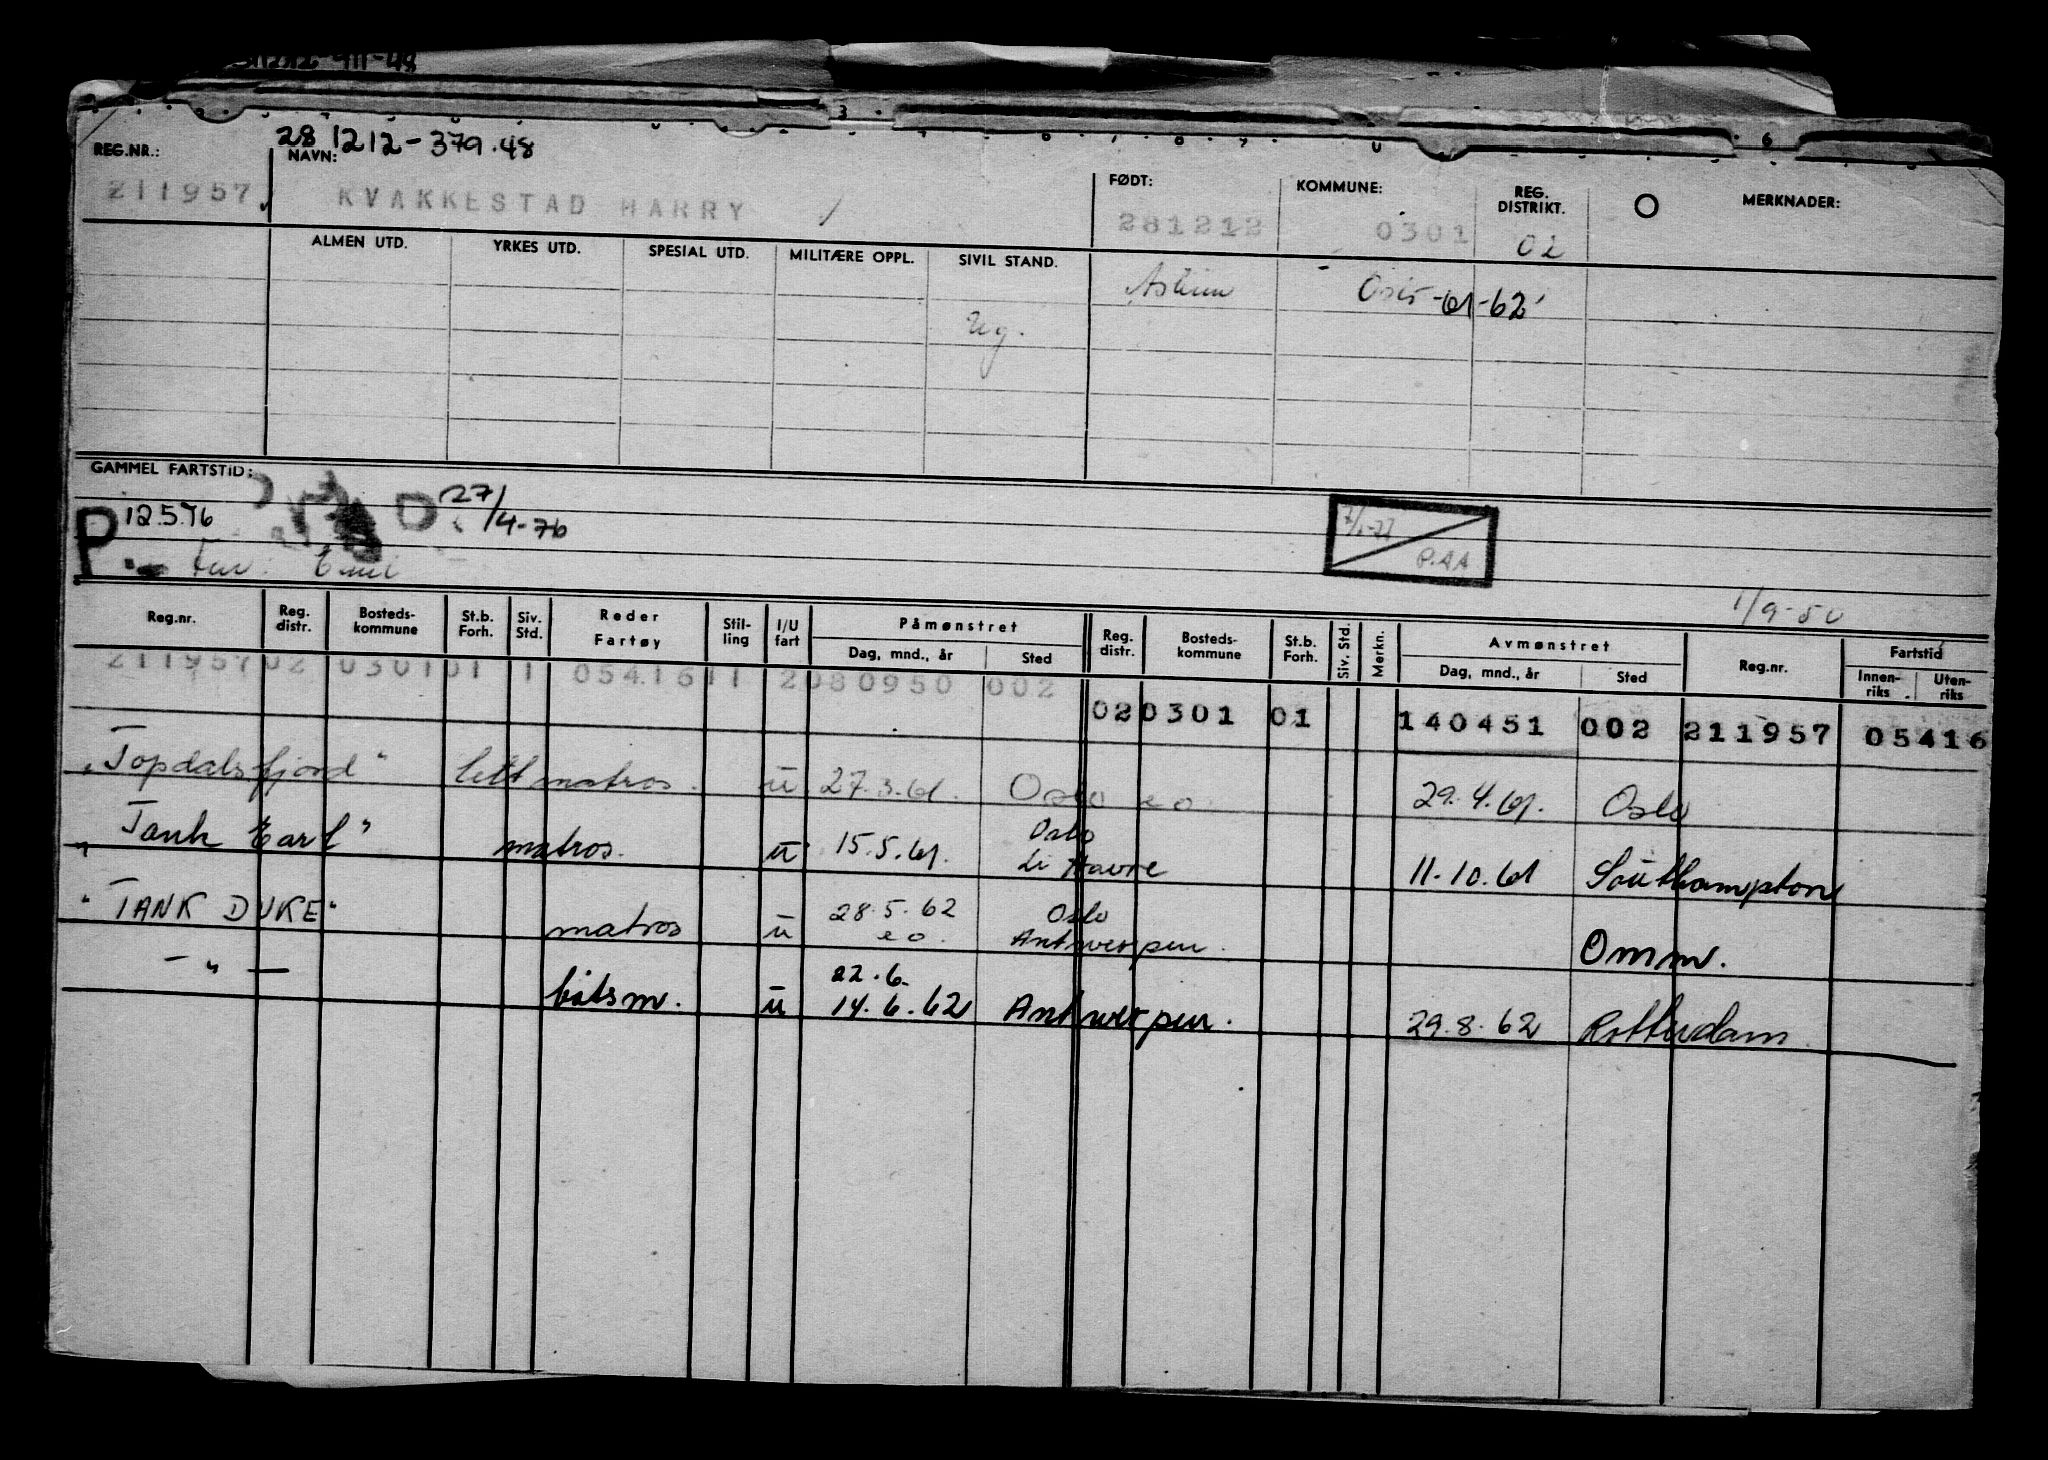 28 1212-379.48
REG.NR.: NAVN: FØDT: KOMMUNE: REG. DISTRIKT. MERKNADER:
211957 KVAKKESTAD HARRY / 281212 0301 02
ALMEN UTD. YRKES UTD. SPESIAL UTD. MILITÆRE OPPL. SIVIL STAND.
Askim Oslo -61-62
Ug.
GAMMEL FARTSTID:
P 12.5.76 D 27/4-76
P.AA
Emil
1/9-50
Reg.nr. Reg. distr. Bosteds- kommune St.b. Forh. Siv. Std. Reder Fartøy Stil- ling I/U fart Påmønstret Dag, mnd., år Sted Reg. distr. Bosteds- kommune St.b. Forh. Siv. Std. Merkn. Avmønstret Dag, mnd., år Sted Reg.nr. Fartstid Innen- riks Uten- riks
211957 02 0301 01 1 0541611 2 080950 002
02 0301 01 140451 002 211957 05416
"Topdalsfjord" lettmatros. ü 27.3.61. Oslo eo 29.4.61. Oslo
"Tank Earl" matros. ü 15.5.61. Oslo Le Havre 11.10.61 Southampton
"TANK DUKE" matros ü 28.5.62 eo. Oslo Antwerpen. Omm.
— " — båtsm. ü 22.6. 14.6.62 Antwerpen. 29.8.62 Rotterdam.